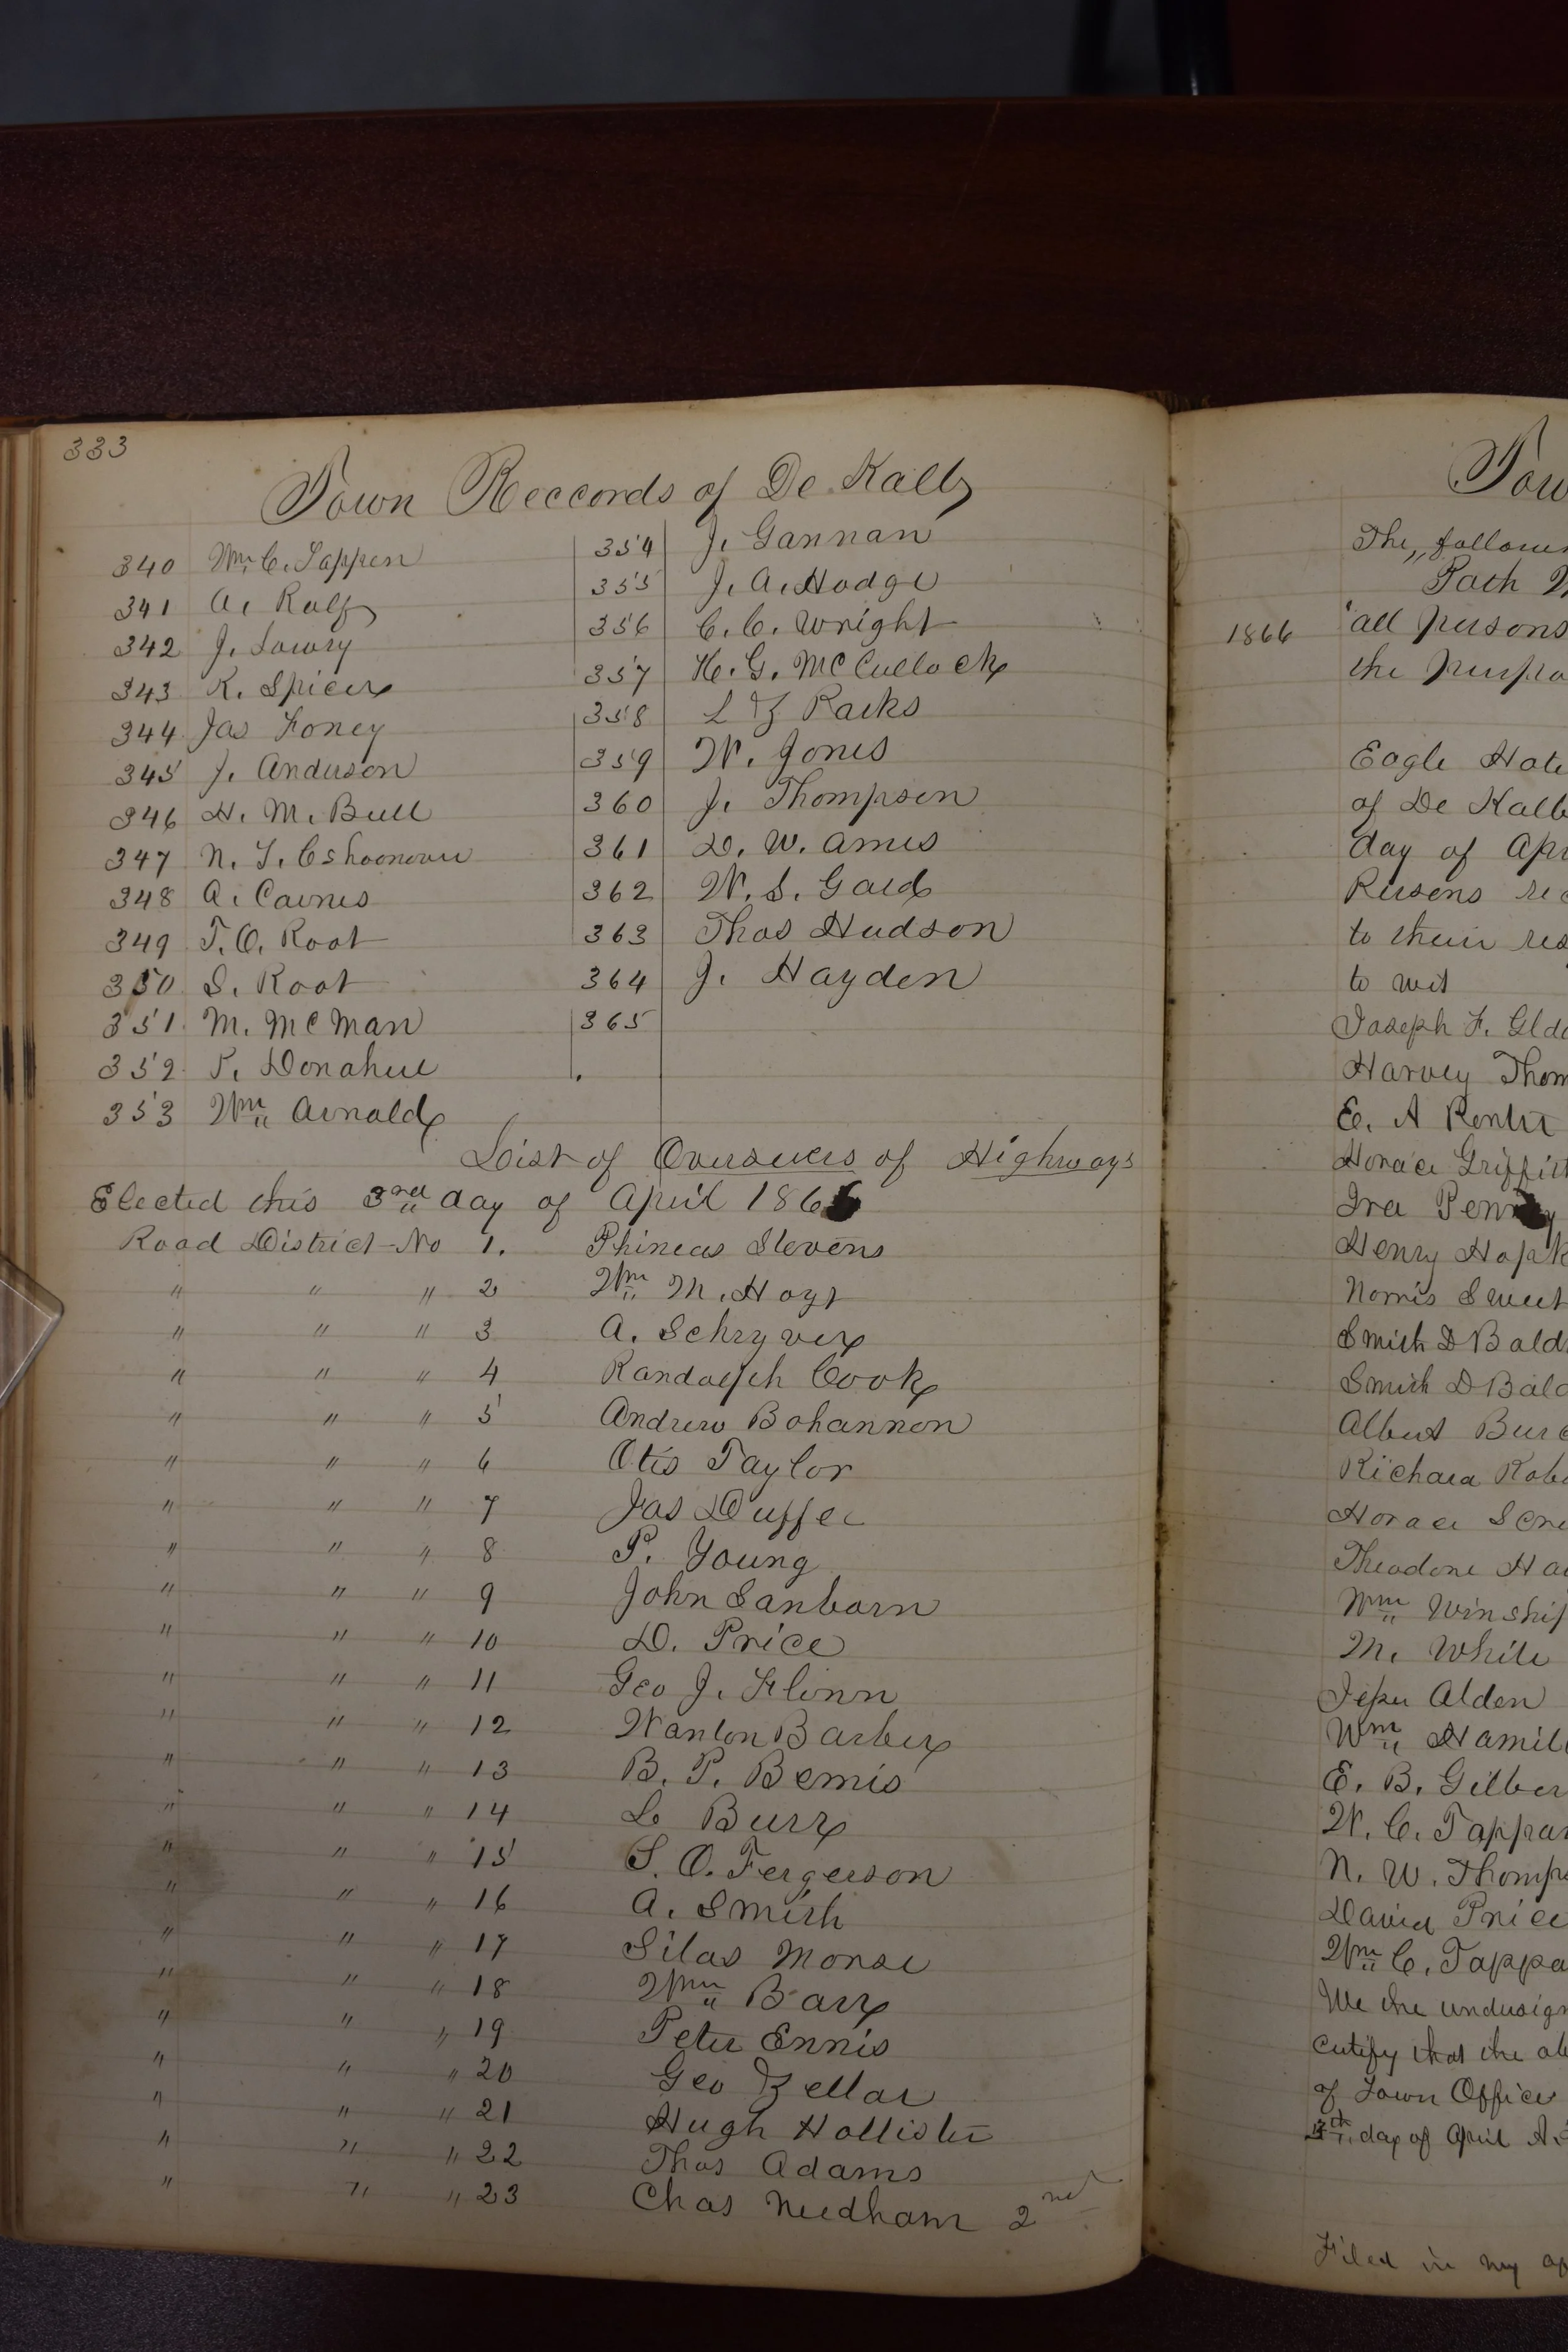 333
Town Reccords of De Kalb
340 Wm C. Tappen
341 A. Ralf
342 J. Lowry
343 K. Spicer
344 Jas Foney
345 J. Anderson
346 H. M. Bull
347 N. T.
348 A. Caines
349 T. O. Root
350 S. Root
351 M. McMan
352 P. Donahue
353 Wm Arnold
354 J. Gannan
355 J. A. Hodge
356 C. C. Wright
357 H. G. McCullock
358 L Z Racks
359 W. Jones
360 J. Thompson
361 D. W. Ames
362 W. S. Gard
363 Thos Hudson
364 J. Hayden
365
List of Overseers of Highways
Elected this 3rd day of April 1866
Road District No 1. Phineas Stevens
" " " 2 Wm M. Hoyt
" " " 3 A. Schryver
" " " 4 Randolph Cook
" " " 5 Andrew Bohannon
" " " 6 Otis Taylor
" " " 7 Jas Duffee
" " " 8 P. Young
" " " 9 John Sanborn
" " " 10 D. Price
" " " 11 Geo J. Flinn
" " " 12 Wanton Barber
" " " 13 B. P. Bemis
" " " 14 L Burr
" " " 15 S. O. Fergerson
" " " 16 A. Smith
" " " 17 Silas Morse
" " " 18 Wm Barr
" " " 19 Peter Ennis
" " " 20 Geo Zellar
" " " 21 Hugh Hollister
" " " 22 Thos Adams
" " " 23 Chas Needham 2nd
Tow
The,, followi
Path
1866 all persons
the purpo
Eagle Hote
of De Kalb
day of Apr
Persons rec
to their res
to wit
Joseph F. Glde
Harvey Thom
E. A
Horace Griffith
Ira Penny
Henry Hopk
Norris Sweet
Smith D Bald
Smith D Bald
Albert Bur
Richard Robe
Horace Scri
Theodore Ha
Wm Winship
M. White
Alden
Wm Hamil
E. B. Gilber
W. C. Tappan
N. W. Thomps
David Price
Wm C. Tappa
We the undersign
certify that the ab
of Town Office
day of April A.
Filed in my of